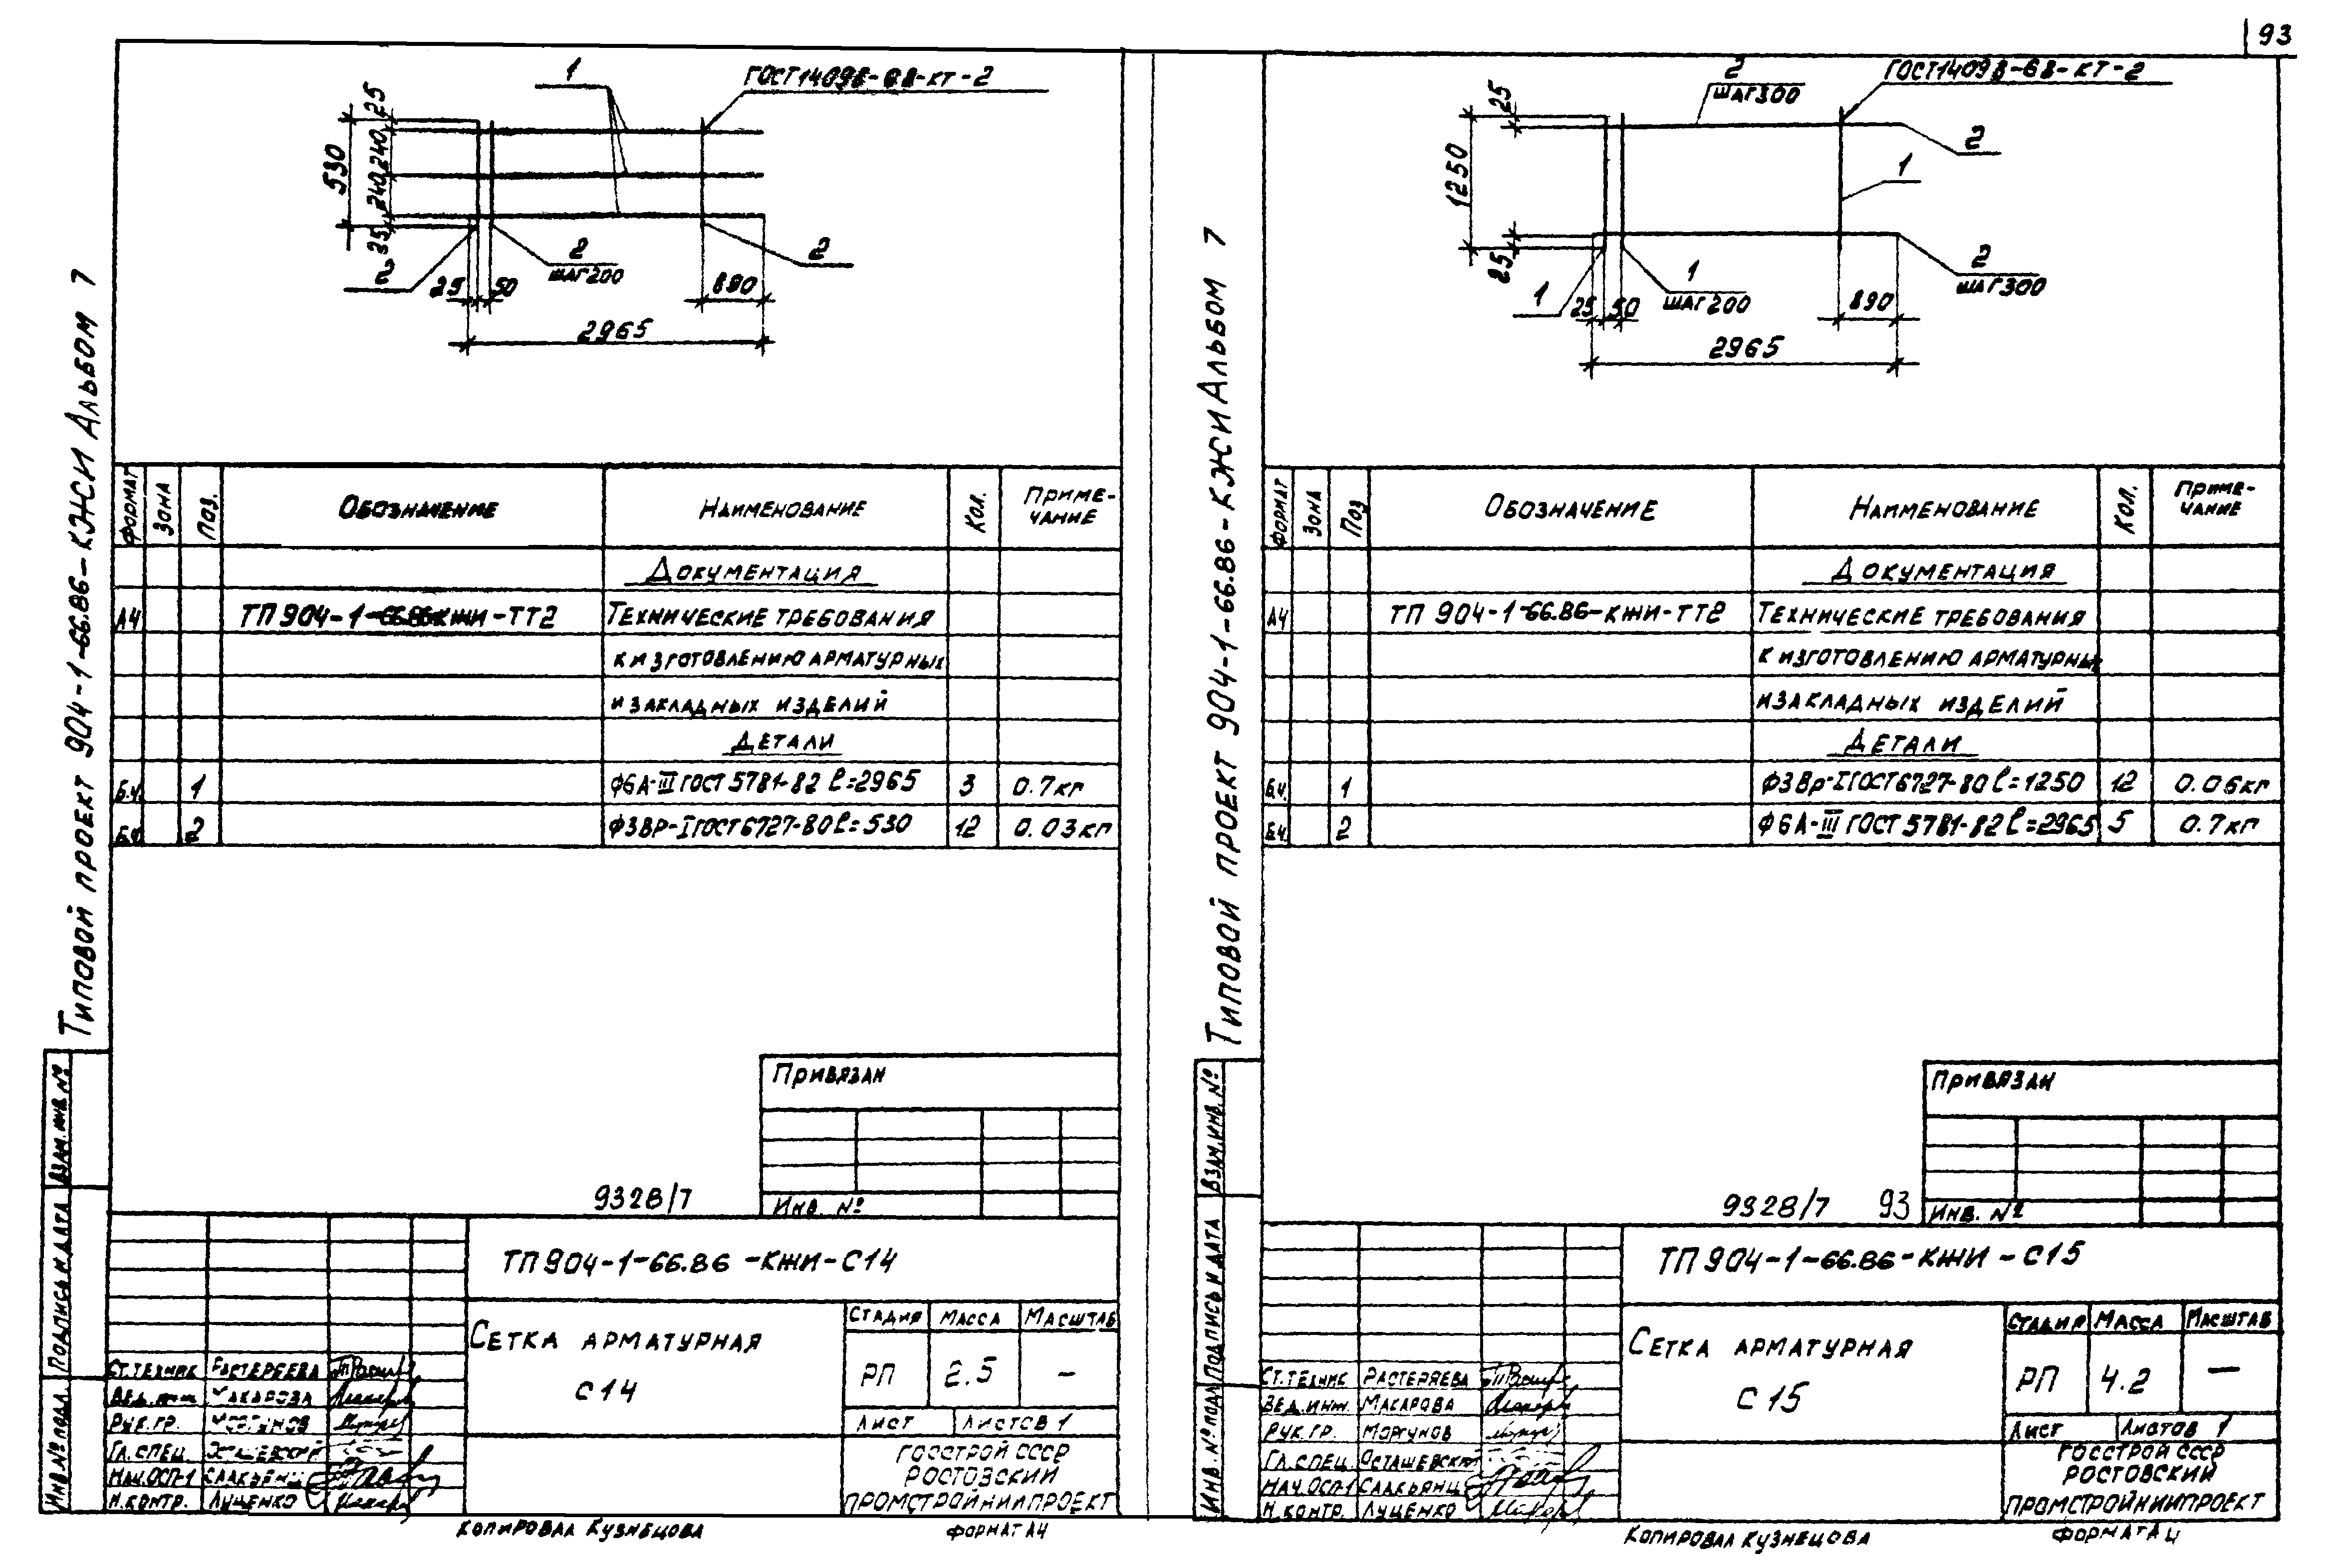 93
1
ГОСТ14098-68-КТ-2
25
240
240
25
530
2
25
50
2
ШАГ200
2
890
2965
ФОРМАТ
ЗОНА
ПОЗ.
ОБОЗНАЧЕНИЕ
НАИМЕНОВАНИЕ
КОЛ.
ПРИМЕ-
ЧАНИЕ
ДОКУМЕНТАЦИЯ
А4 ТП 904-1-66.86-КЖИ-ТТ2 ТЕХНИЧЕСКИЕ ТРЕБОВАНИЯ
К ИЗГОТОВЛЕНИЮ АРМАТУРНЫХ
И ЗАКЛАДНЫХ ИЗДЕЛИЙ
ДЕТАЛИ
Б.Ч. 1 Ф6А-III ГОСТ 5781-82 l=2965 3 0.7кг
Б.Ч. 2 Ф3ВР-I ГОСТ 6727-80 l=530 12 0.03кг
ТИПОВОЙ ПРОЕКТ 904-1-66.86-КЖИ АЛЬБОМ 7
ВЗАМ.ИНВ.№
ПОДПИСЬ И ДАТА
ИНВ.№ ПОДЛ.
ПРИВЯЗАН
ИНВ. №
9328/7
ТП 904-1-66.86-КЖИ-С14
СЕТКА АРМАТУРНАЯ
С14
СТАДИЯ МАССА МАСШТАБ
РП 2.5 —
ЛИСТ ЛИСТОВ 1
ГОССТРОЙ СССР
РОСТОВСКИЙ
ПРОМСТРОЙНИИПРОЕКТ
СТ.ТЕХНИК РАСТЕРЯЕВА
ВЕД.ИНЖ. МАКАРОВА
РУК.ГР. МОРГУНОВ
ГЛ.СПЕЦ. ОСТАШЕВСКИЙ
НАЧ.ОСП-1 СЛАКЬЯНЦ
Н.КОНТР. ЛУЦЕНКО
КОПИРОВАЛ КУЗНЕЦОВА
ФОРМАТ А4
2
ШАГ300
ГОСТ14098-68-КТ-2
25
1250
25
2
1
2
ШАГ300
1
25
50
1
ШАГ200
890
2965
ФОРМАТ
ЗОНА
ПОЗ
ОБОЗНАЧЕНИЕ
НАИМЕНОВАНИЕ
КОЛ.
ПРИМЕ-
ЧАНИЕ
ДОКУМЕНТАЦИЯ
А4 ТП 904-1-66.86-КЖИ-ТТ2 ТЕХНИЧЕСКИЕ ТРЕБОВАНИЯ
К ИЗГОТОВЛЕНИЮ АРМАТУРНЫХ
И ЗАКЛАДНЫХ ИЗДЕЛИЙ
ДЕТАЛИ
Б.Ч. 1 Ф3Вр-I ГОСТ 6727-80 l=1250 12 0.06кг
Б.Ч. 2 Ф6А-III ГОСТ 5781-82 l=2965 5 0.7кг
ТИПОВОЙ ПРОЕКТ 904-1-66.86-КЖИ АЛЬБОМ 7
ВЗАМ.ИНВ.№
ПОДПИСЬ И ДАТА
ИНВ.№ ПОДЛ
ПРИВЯЗАН
ИНВ. №
9328/7 93
ТП 904-1-66.86-КЖИ-С15
СЕТКА АРМАТУРНАЯ
С15
СТАДИЯ МАССА МАСШТАБ
РП 4.2 —
ЛИСТ ЛИСТОВ 1
ГОССТРОЙ СССР
РОСТОВСКИЙ
ПРОМСТРОЙНИИПРОЕКТ
СТ.ТЕХНИК РАСТЕРЯЕВА
ВЕД.ИНЖ. МАКАРОВА
РУК.ГР. МОРГУНОВ
ГЛ.СПЕЦ. ОСТАШЕВСКИЙ
НАЧ.ОСП-1 СЛАКЬЯНЦ
Н.КОНТР. ЛУЦЕНКО
КОПИРОВАЛ КУЗНЕЦОВА
ФОРМАТ А4